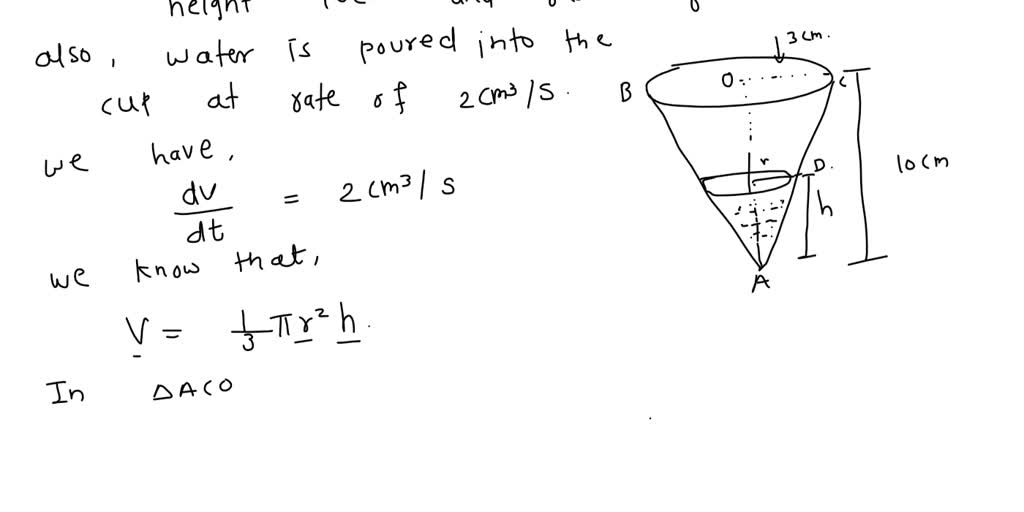 height
also, water is poured into the
cup at rate of 2cm³/s.
we have,
dv/dt = 2cm³/s
we know that,
V = 1/3 πr²h.
In ΔACO
3cm.
O
B
C
r
D.
h
10cm
A